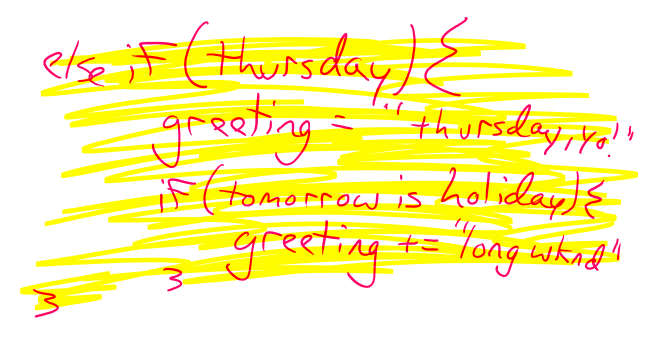 else if (thursday) {
greeting = "thursday, yo!"
if (tomorrow is holiday) {
greeting += "long wknd"
}
}